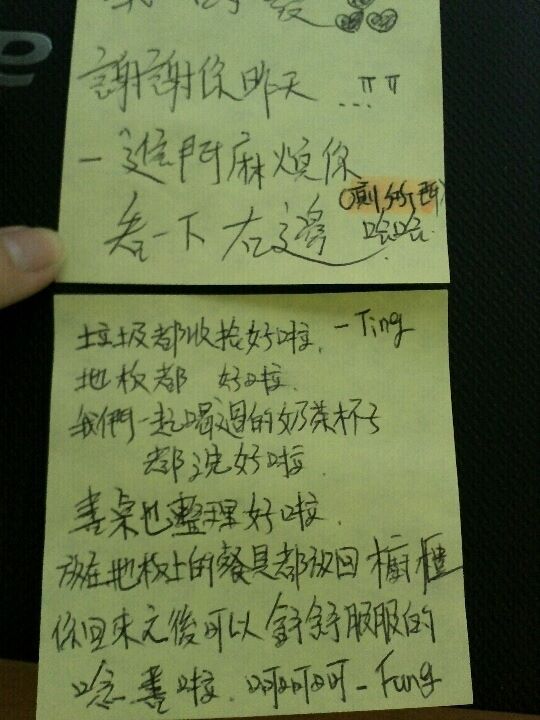 謝謝你昨天...
一進門麻煩你
看一下右邊
哈哈
垃圾都收拾好啦. -Ting
地板都 好啦.
我們一起喝過的奶茶杯子
都洗好啦.
書桌也整理好啦.
放在地板上的餐具都放回櫥櫃
你回來之後可以舒舒服服的
唸書啦. 呵呵呵 - Fung